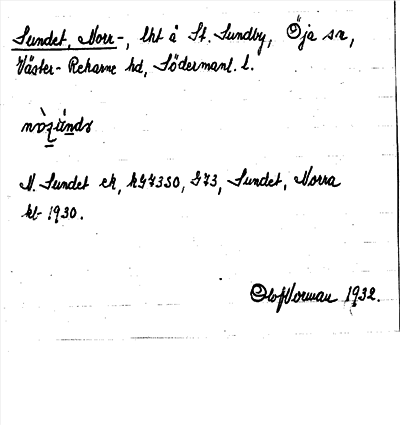 Sundet, Norr-, lht å St. Sundby, Öja sn,
Väster-Rekarne hd, Södermanl. l.
N. Sundet ek, kG7350, J73, Sundet, Norra
kb 1930.
Olof Norman 1932.